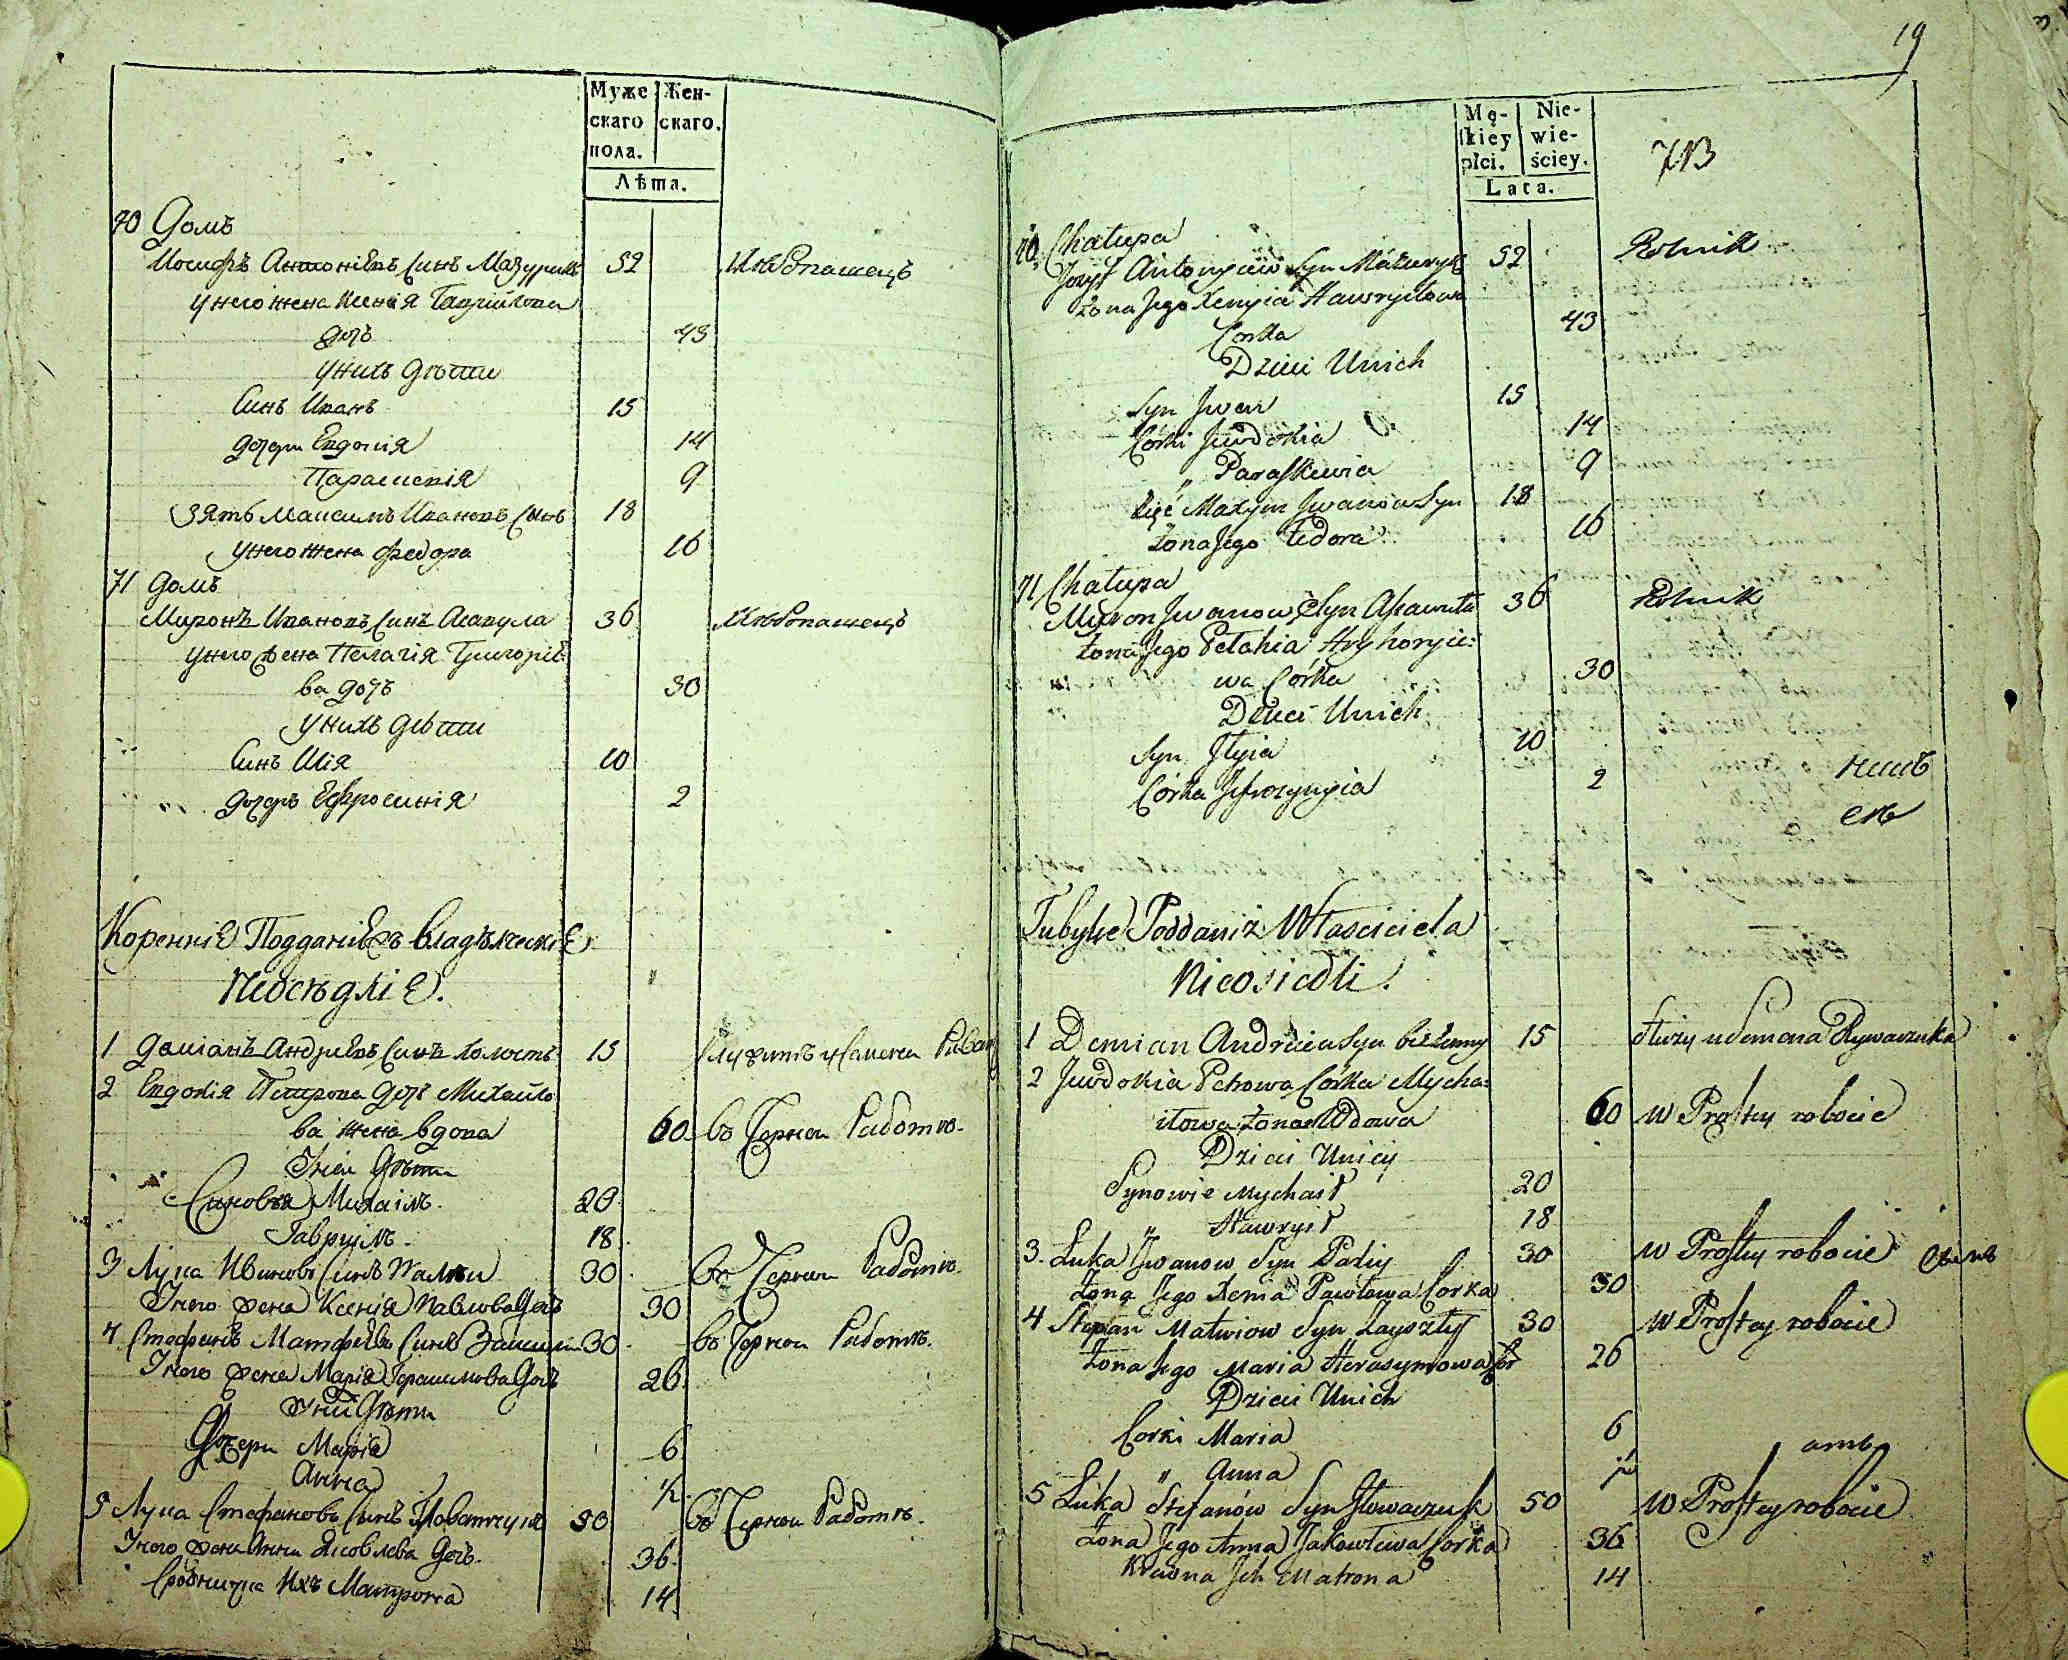 Муже Жен-
скаго скаго.
пола.
Лѣта.
70 Домъ
Иосифъ Антоніевъ Синъ Мазурикъ 52 Хлѣбопашецъ
у него жена Ксенія Гаврилова
дочь 43
у нихъ дѣти
Синъ Иванъ 15
дочери Евдокія 14
Параскевія 9
Зять Максимъ Ивановъ Синъ 18
у него жена Федора 16
71 Домъ
Миронъ Ивановъ Синъ 36 Хлѣбопашецъ
у него жена Пелагія Григоріе-
ва дочь 30
у нихъ дѣти
Синъ Илія 10
дочерь Евфросинія 2
Коренніе Подданіе Владѣлческіе
Неосѣдліе.
1 Даміанъ Андріевъ Синъ холостъ 15
2 Евдокія Петрова дочь Михайло
ва жена вдова 60 въ Черной Работѣ.
У ней дѣти
Синовья Михаилъ. 20.
Гавріилъ. 18.
3 Лука Ивановъ Синъ Палѣй 30. въ Черной Работѣ.
У него жена Ксенія Павлова дочь 30
4 Стефанъ Матфѣевъ Синъ 30. въ Черной Работѣ.
У него жена Марія Герасимова дочь 26.
у них дѣти
Дочери Марія 6.
Анна ½.
5 Лука Стефановъ Синъ 50 въ Черной Работѣ.
У него жена Анна Яковлева дочь. 36.
Сродница ихъ Матрона 14.
19
Mę- Nie-
skiey wie-
płci. ściey.
Lata.
70 Chałupa
Jozyf Antonyiew Syn Mazuryk 52 Rolnik
Żona Jego Xenyia Hawryłowa
Corka 43
Dzieci U nich
Syn Jwan 15
Córki Jewdokia 14
" Paraskiewia 9
Zięć Maxym Jwanow Syn 18
Żona Jego Fedora 16
71 Chałupa
Myron Jwanow Syn 36 Rolnik
Żona Jego Pełahia Hryhoryie:
wa Córka 30
Dzieci U nich
Syn Jłyia 10
Córka Jefrozynyia 2
Tubylce Poddani z Własciciela
Nieosiedli.
1 Demian Andrieiew Syn bezżenny 15 służy u Semena Rywaczuka
2 Jewdokia Petrowa Córka Mycha:
iłowa Żona Wdowa 60 w Prostey robocie
Dzieci U niey
Synowie Mychaił 20
" Hawryił 18
3. Łuka Jwanow Syn Paliy 30 w Prostey robocie
Żona Jego Xenia Pawłowa Corka 30
4 Stepan Matwiow Syn 30 w Prostey robocie
Żona Jego Maria Herasymowa Cor 26
Dzieci U nich
Corki Maria 6
" Anna ½
5 Łuka Stefanów Syn 50 w Prostey robocie
Żona Jego Anna Jakowlewa Corka 36
Krewna Jch Matrona 14